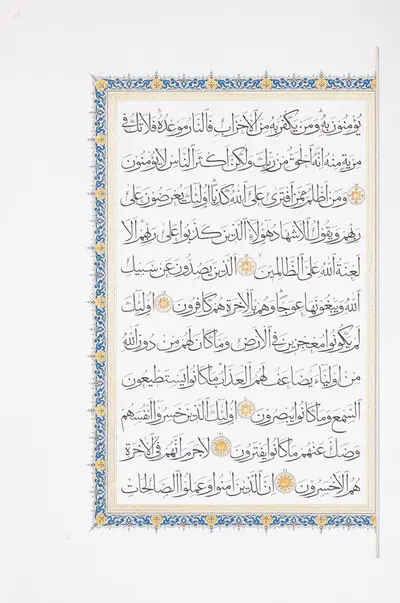 يؤمنون به ومن يكفر به من الاحزاب فالنار موعده فلا تك في
مرية منه انه الحق من ربك ولكن اكثر الناس لا يؤمنون
ومن اظلم ممن افترى على الله كذبا اولئك يعرضون على
ربهم ويقول الاشهاد هؤلاء الذين كذبوا على ربهم الا
لعنة الله على الظالمين الذين يصدون عن سبيل
الله ويبغونها عوجا وهم بالاخرة هم كافرون اولئك
لم يكونوا معجزين في الارض وما كان لهم من دون الله
من اولياء يضاعف لهم العذاب ما كانوا يستطيعون
السمع وما كانوا يبصرون اولئك الذين خسروا انفسهم
وضل عنهم ما كانوا يفترون لا جرم انهم في الاخرة
هم الاخسرون ان الذين امنوا وعملوا الصالحات